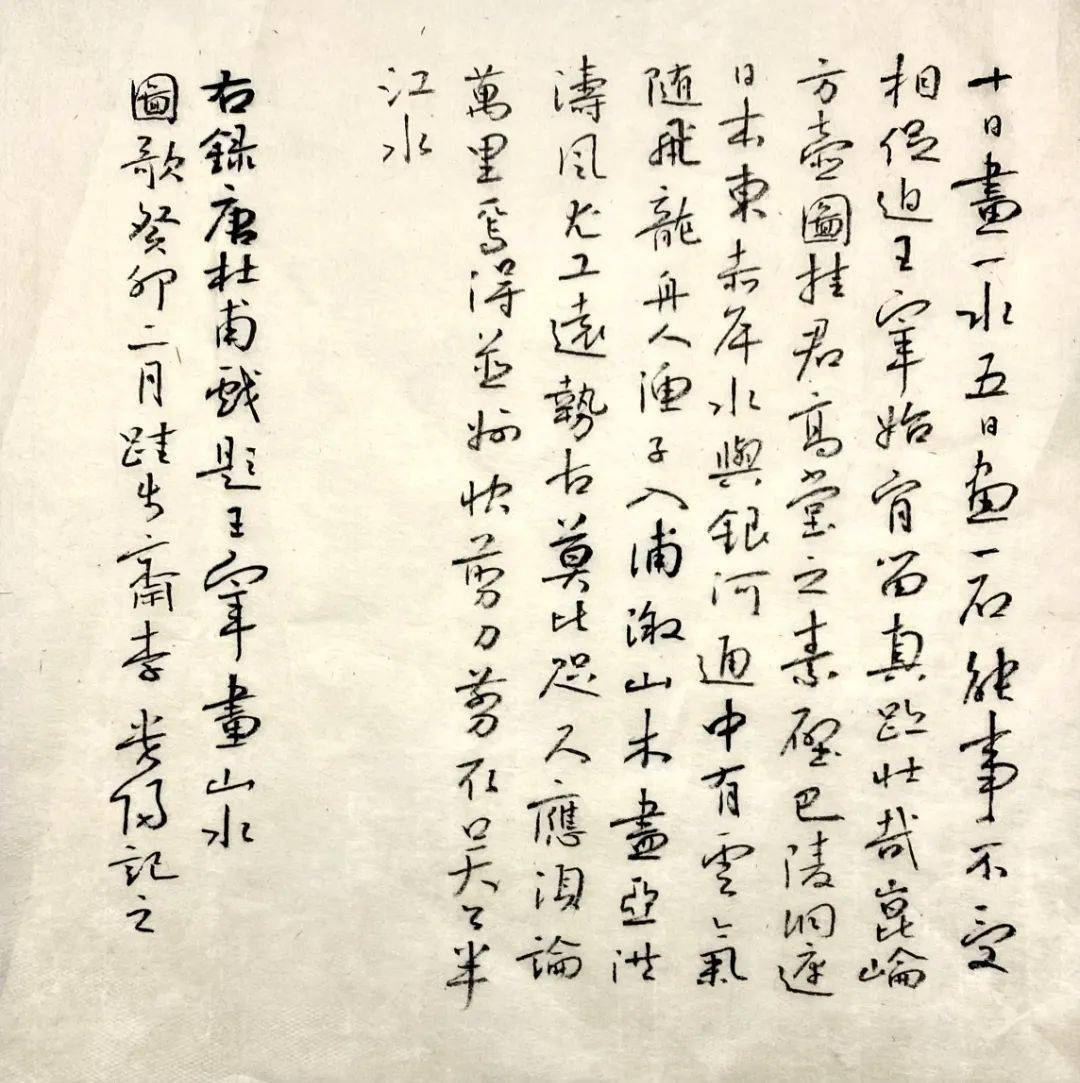 十日畫一水五日畫一石能事不受
相促迫王宰始肯留真跡壯哉崑崘
方壺圖挂君高堂之素壁巴陵洞庭
日本東赤岸水與銀河通中有雲氣
随飛龍舟人漁子入浦漵山木盡亞洪
濤風尤工遠勢古莫比咫尺應須論
萬里焉得並州快剪刀剪取吳松半
江水
右録唐杜甫戲題王宰畫山水
圖歌癸卯二月跬步齋李記之